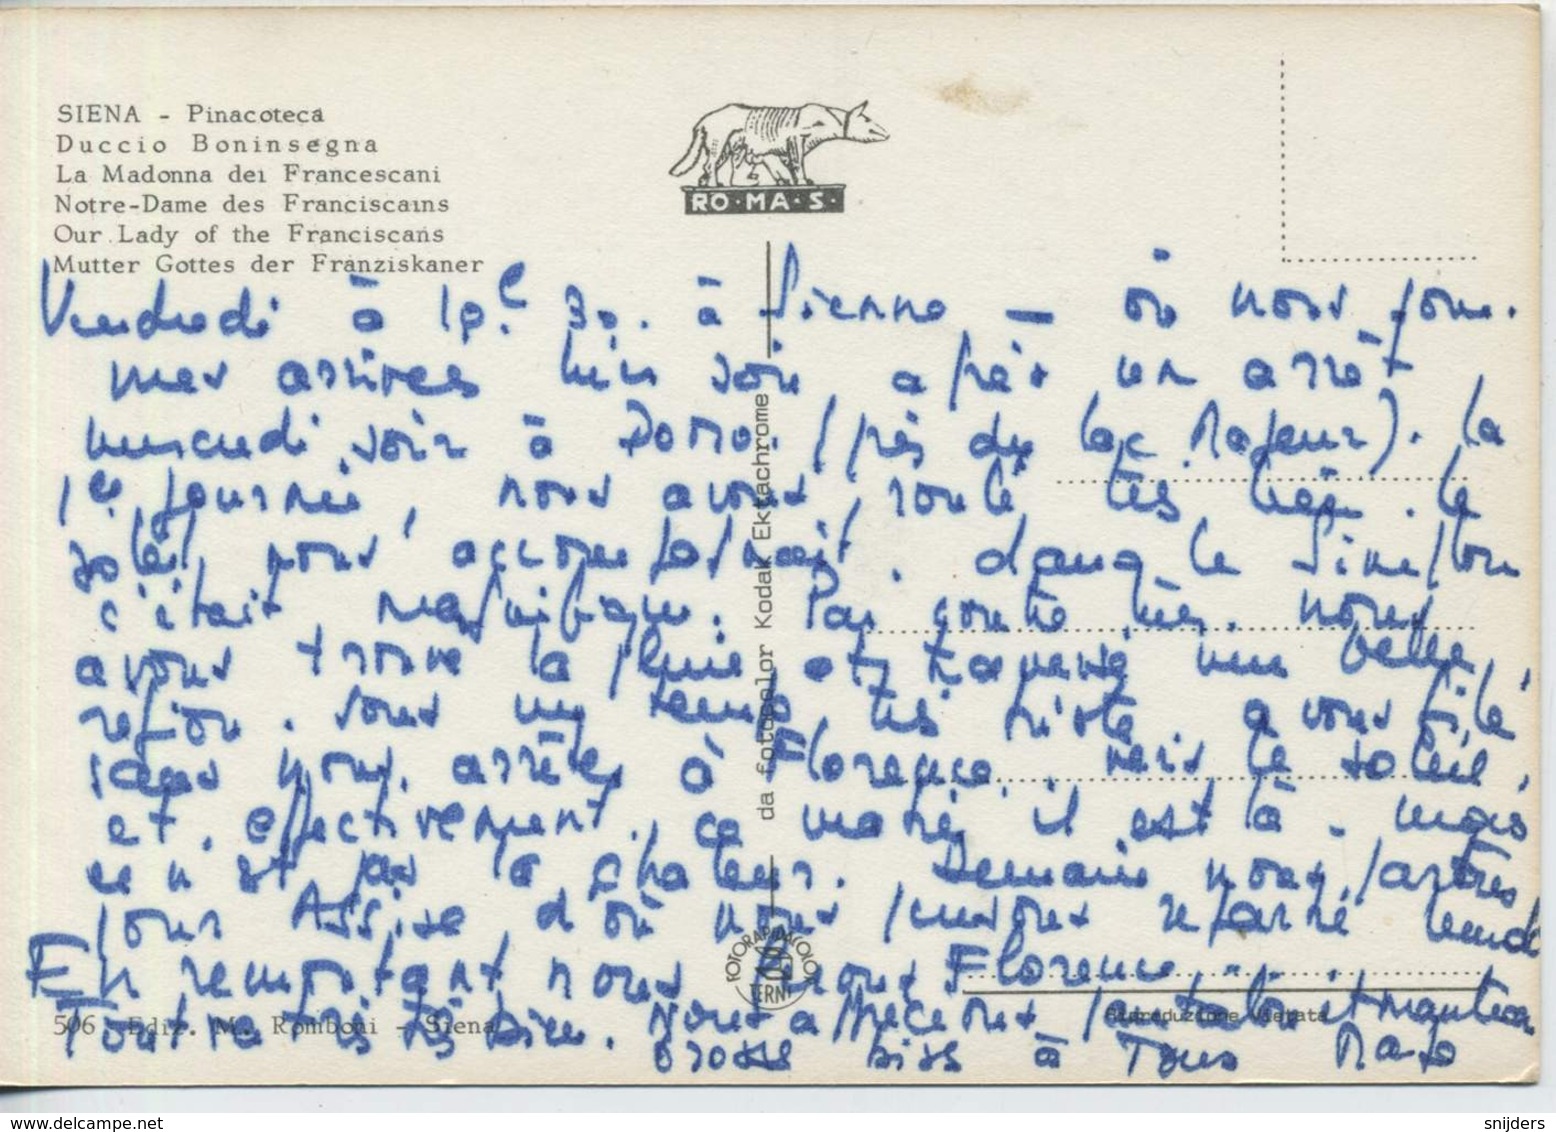 SIENA - Pinacoteca
Duccio Boninsegna
La Madonna dei Francescani
Notre-Dame des Franciscains
Our Lady of the Franciscans
Mutter Gottes der Franziskaner
RO·MA·S·
da fotocolor Kodak Ektachrome
FOTORAPIDACOLOR
TERNI
506 Ediz. M. Romboni - Siena
Riproduzione vietata
Vendredi à 10h 30. à Sienne - où nous som.
mes arrivés hier soir après un arrêt
mercredi soir à Domo. (près du lac Majeur). La
1re journée, nous avons roulé très bien. le
soleil nous accompagnait. dans le Simplon
c'était magnifique. Par contre hier. nous
avons trouvé la pluie et traversé une belle
région. sous un temps très triste. avons filé
sans nous arrêter à Florence. vers le soleil,
et. effectivement, ce matin il est là. mais
ce n'est pas la chaleur. Demain nous partons
pour Assise d'où nous pensons repartir lundi
En remontant nous Florence...
Tout va très très bien. Nous apprécions pantalon et manteau
Grosse bise à Tous
snijders